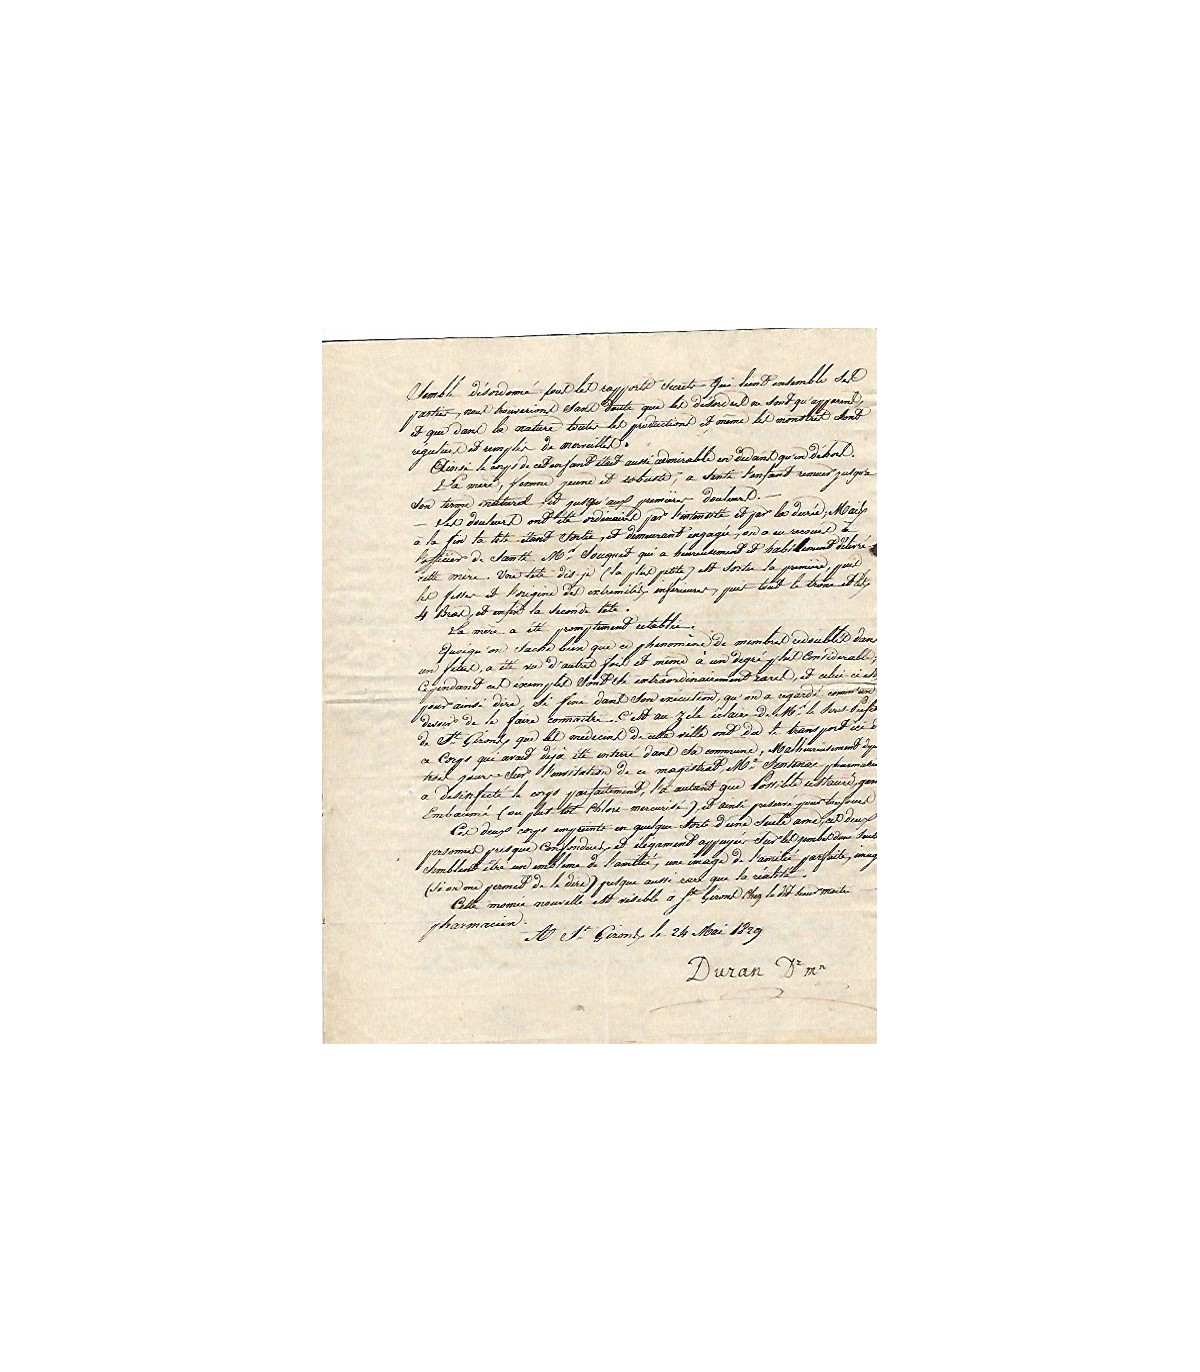 semble désordonné sont les rapports secrets qui lient ensemble ses
parties, nous trouverions sans doute que les désordres ne sont qu'apparens,
et que dans la nature toutes les productions et même les monstres sont
réguliers et remplis de merveilles.
Ainsi le corps de cet enfant était aussi admirable en dedans qu'en déhors.
La mère, femme jeune et robuste, a senti l'enfant remuer jusqu'a
son terme naturel et jusqu'aux premières douleurs. —
— Les douleurs ont été ordinaires par l'intensité et par la durée; Mais
à la fin la tête étant sortie, et demeurant engagée, on a eu recours à
l'officier de santé Mr. Souquet qui a heureusement et habilement délivré
cette mère. Une tête dis-je (la plus petite) est sortie la première, puis
les fesses et l'origine des extremités inférieures, puis tout le tronc et les
4 Bras, et enfin la seconde tête.
La mère a été promptement rétablie.
Quoiqu'on sache bien que ce phénomène de membres redoublés dans
un fétus, a été vu d'autres fois et même à un dégré plus considérable,
cependant ces éxemples sont si extraordinairement rares, et celui-ci est
pour ainsi dire, si fini dans son exécution, qu'on a regardé comm'un
devoir de le faire connaitre. C'est au zèle éclairé de Mr. le Sous-Préfet
de St. Girons que les medecins de cette ville ont dû le transport ici de
ce corps qui avait déja été interré dans sa commune, Malheureusement depuis
trois jours. Sur l'invitation de ce magistrat, Mr. Sentenac pharmacien
a desinfecté le corps parfaitement, l'a autant que possible restauré, puis
Embaumé (ou plus tôt Chloré mercurisé) et ainsi preservé pour toujours
Ces deux corps empreints en quelque sorte d'une seule ame, ces deux
personnes presque confondues et élégament appuyés sur les jambes d'une seule
semblent être un emblême de l'amitié, une image de l'amitié parfaite, image
(si on me permet de le dire) presque aussi rare que la réalité.
Cette momie nouvelle est visible à St. Girons Chez le dit sieur maitre
pharmacien.
A St. Girons, le 24 Mai 1829
Duran Dr. mn